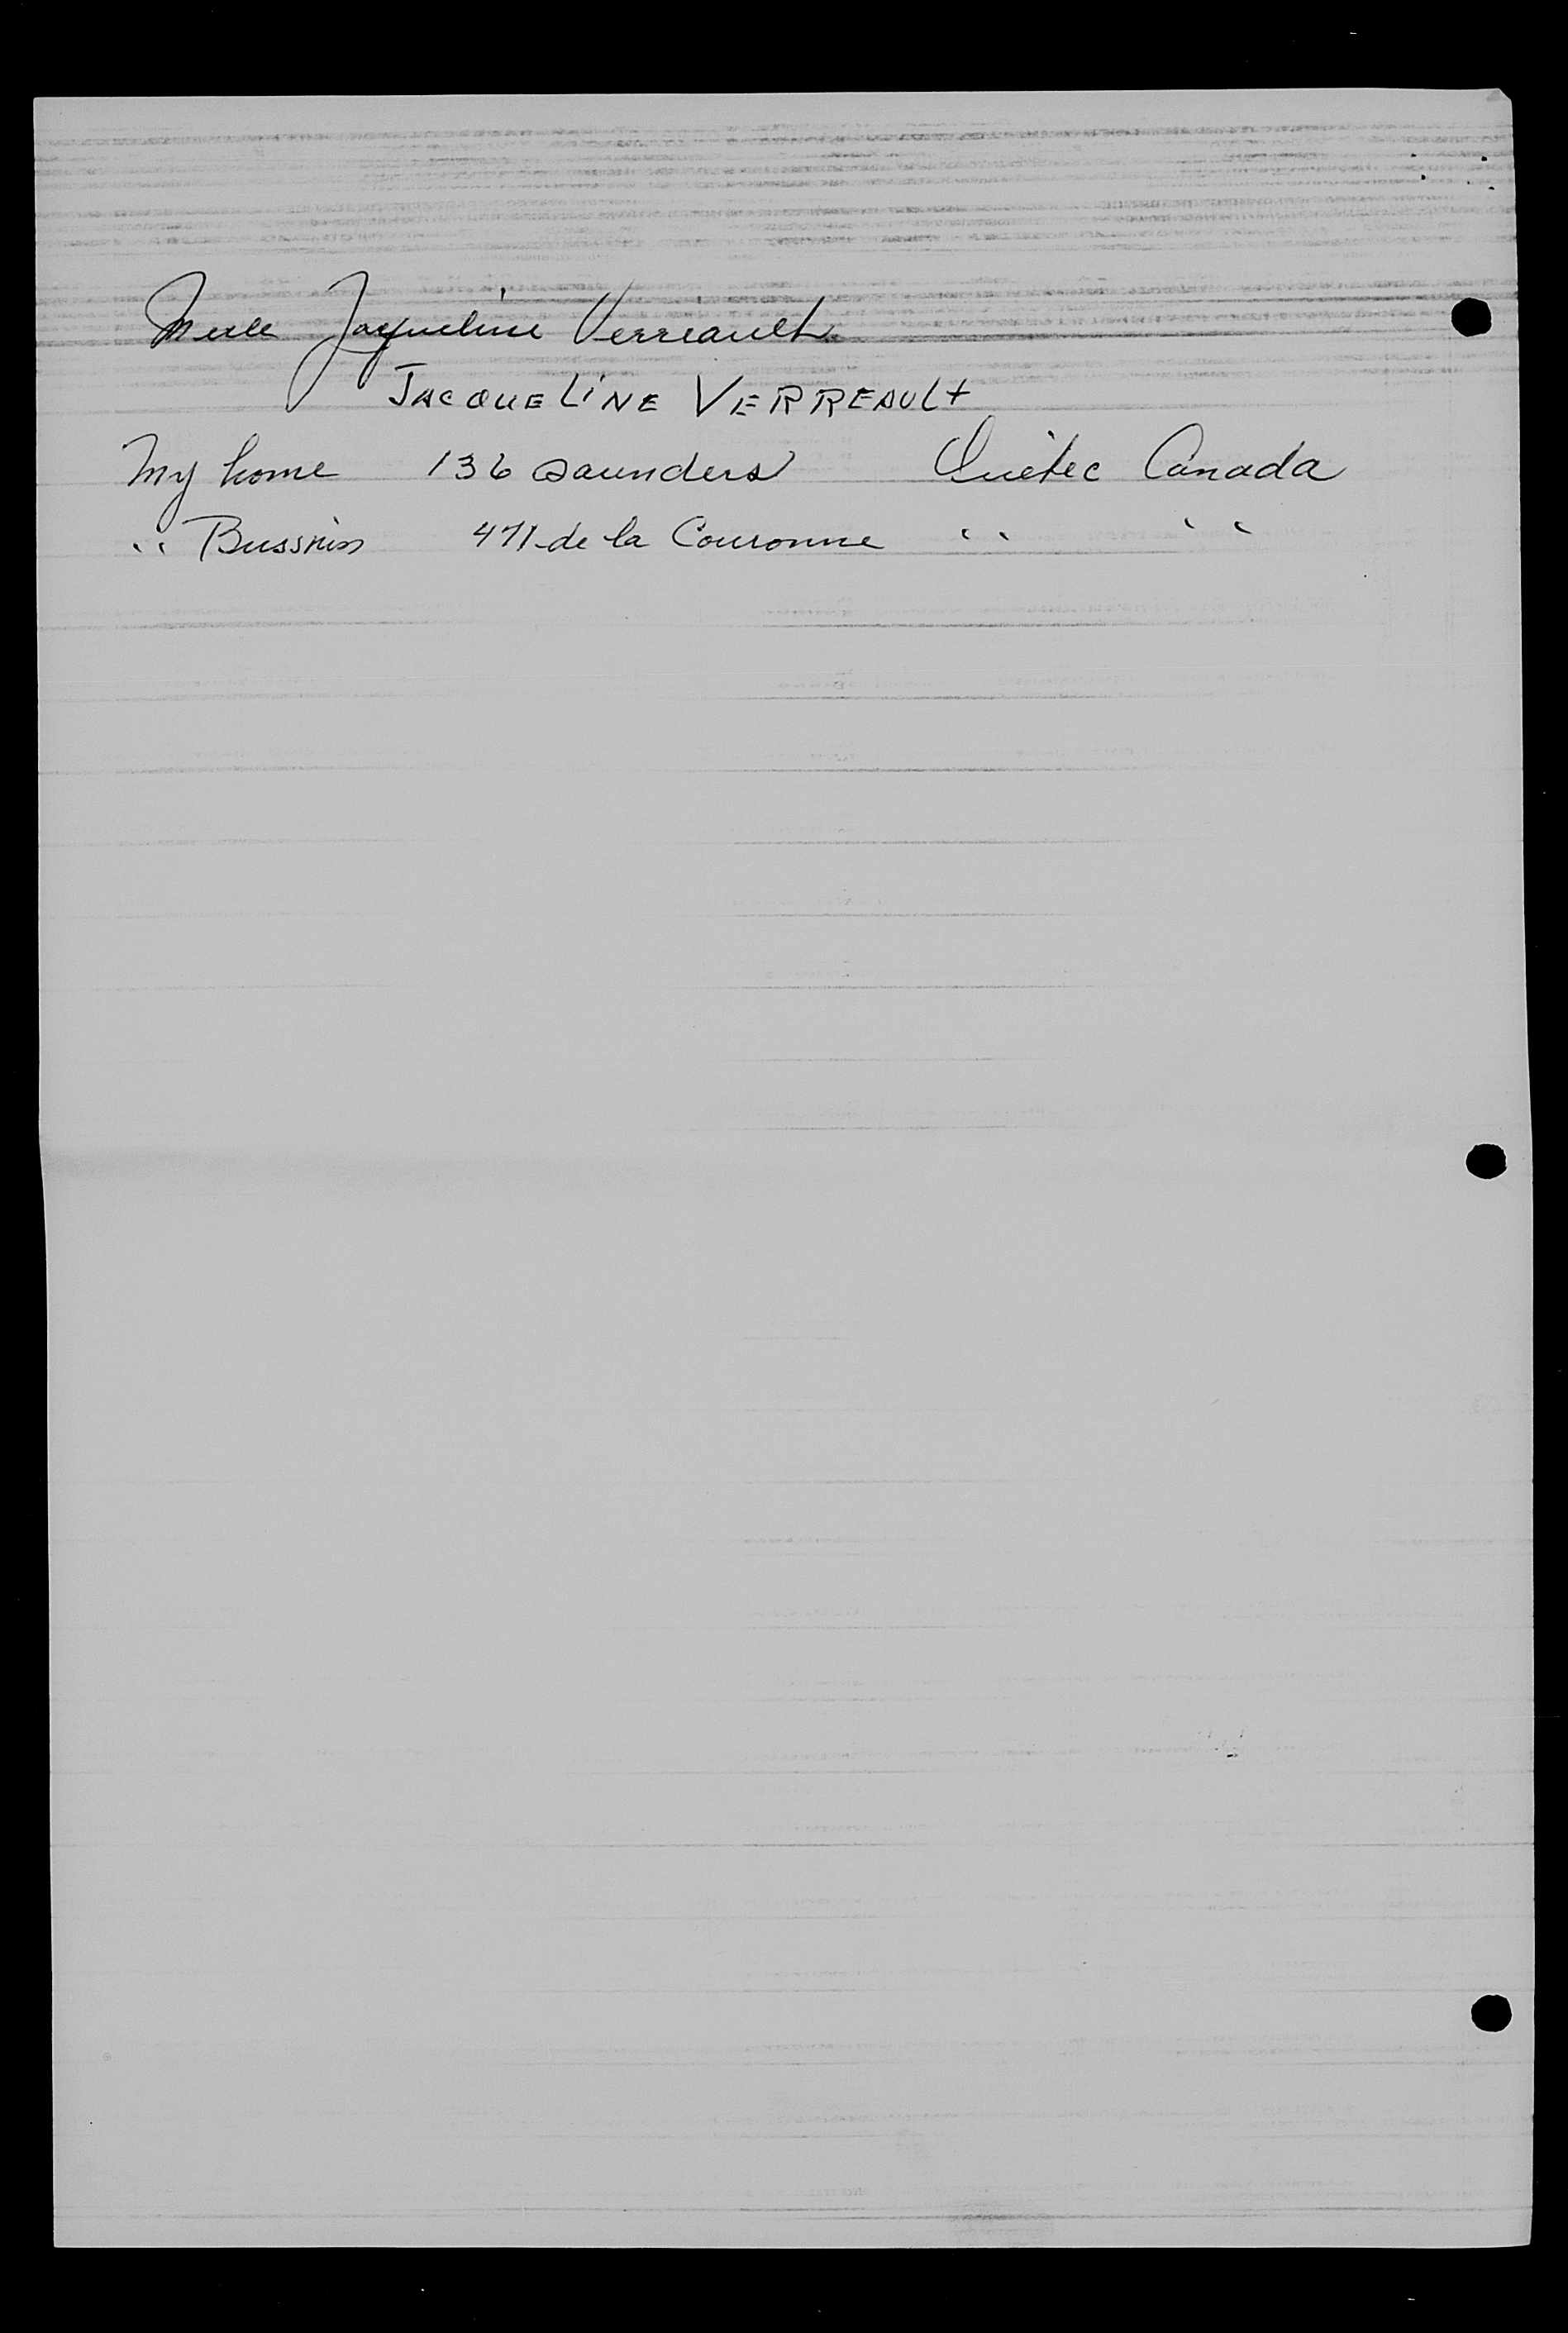 Melle Jacqueline Verreault
JACQUELINE VERREAULT
My home 136 Saunders Québec Canada
" Bussnies 471 de la Couronne " "